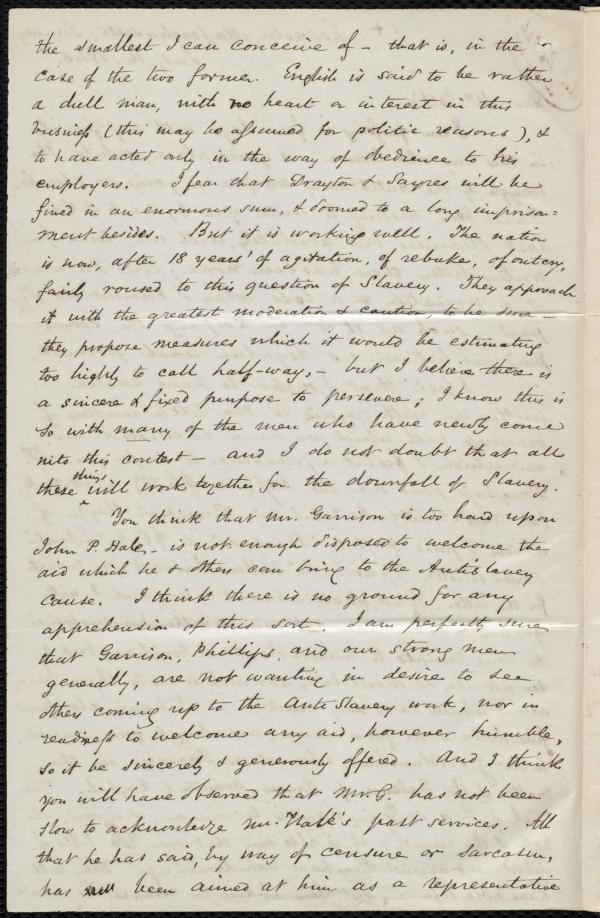 the smallest I can conceive of - that is, in the
case of the two former. English is said to be rather
a dull man, with no heart or interest in this
business (this may be assumed for politic reasons), &
to have acted only in the way of obedience to his
employers. I fear that Drayton & Sayres will be
fined in an enormous sum, & doomed to a long imprison=
ment besides. But it is working well. The nation
is now, after 18 years' of agitation, of rebuke, of outcry,
fairly roused to this question of Slavery. They approach
it with the greatest moderation & caution, to be sure -
they propose measures which it would be estimating
too highly to call half-way, - but I believe there is
a sincere & fixed purpose to persevere; I know this is
so with many of the men who have newly come
into this contest - and I do not doubt that all
these things will work together for the downfall of Slavery.
You think that Mr. Garrison is too hard upon
John P. Hale, - is not enough disposed to welcome the
aid which he & others can bring to the Antislavery
cause. I think there is no ground for any
apprehension of this sort. I am perfectly sure
that Garrison, Phillips, and our strong men
generally, are not wanting in desire to see
others coming up to the Anti Slavery work, nor in
readiness to welcome any aid, however humble,
so it be sincerely & generously offered. And I think
you will have observed that Mr. G. has not been
slow to acknowledge Mr. Hale's past services. All
that he has said, by way of censure or sarcasm,
has been aimed at him as a representative